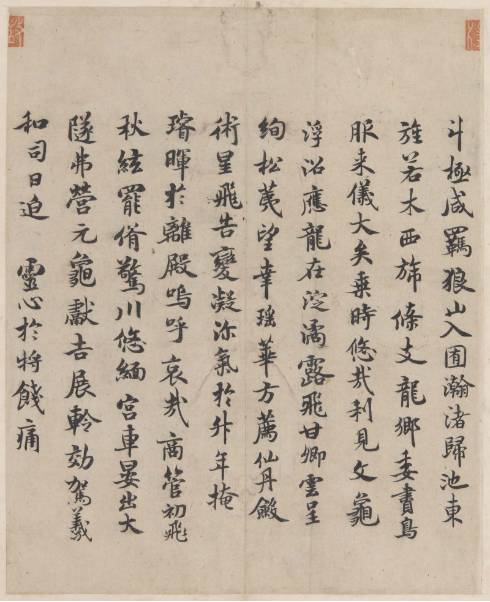 斗極咸羈狼山入囿瀚渚歸池東
旌若木西旆條支龍鄉委書鳥
服来儀大矣乗時悠㢤利見文龜
浮沼應龍在淀濡露飛甘卿雲呈
絢松荑望幸瑶華方薦仙丹斂
術星飛告變凝沴氣於升年掩
璿暉於離殿嗚呼哀㢤商管初飛
秋絃罷脩驚川悠緬宮車晏出大
隧弗營元龜獻吉展軨効駕羲
和司日迫 靈心於將餞痛